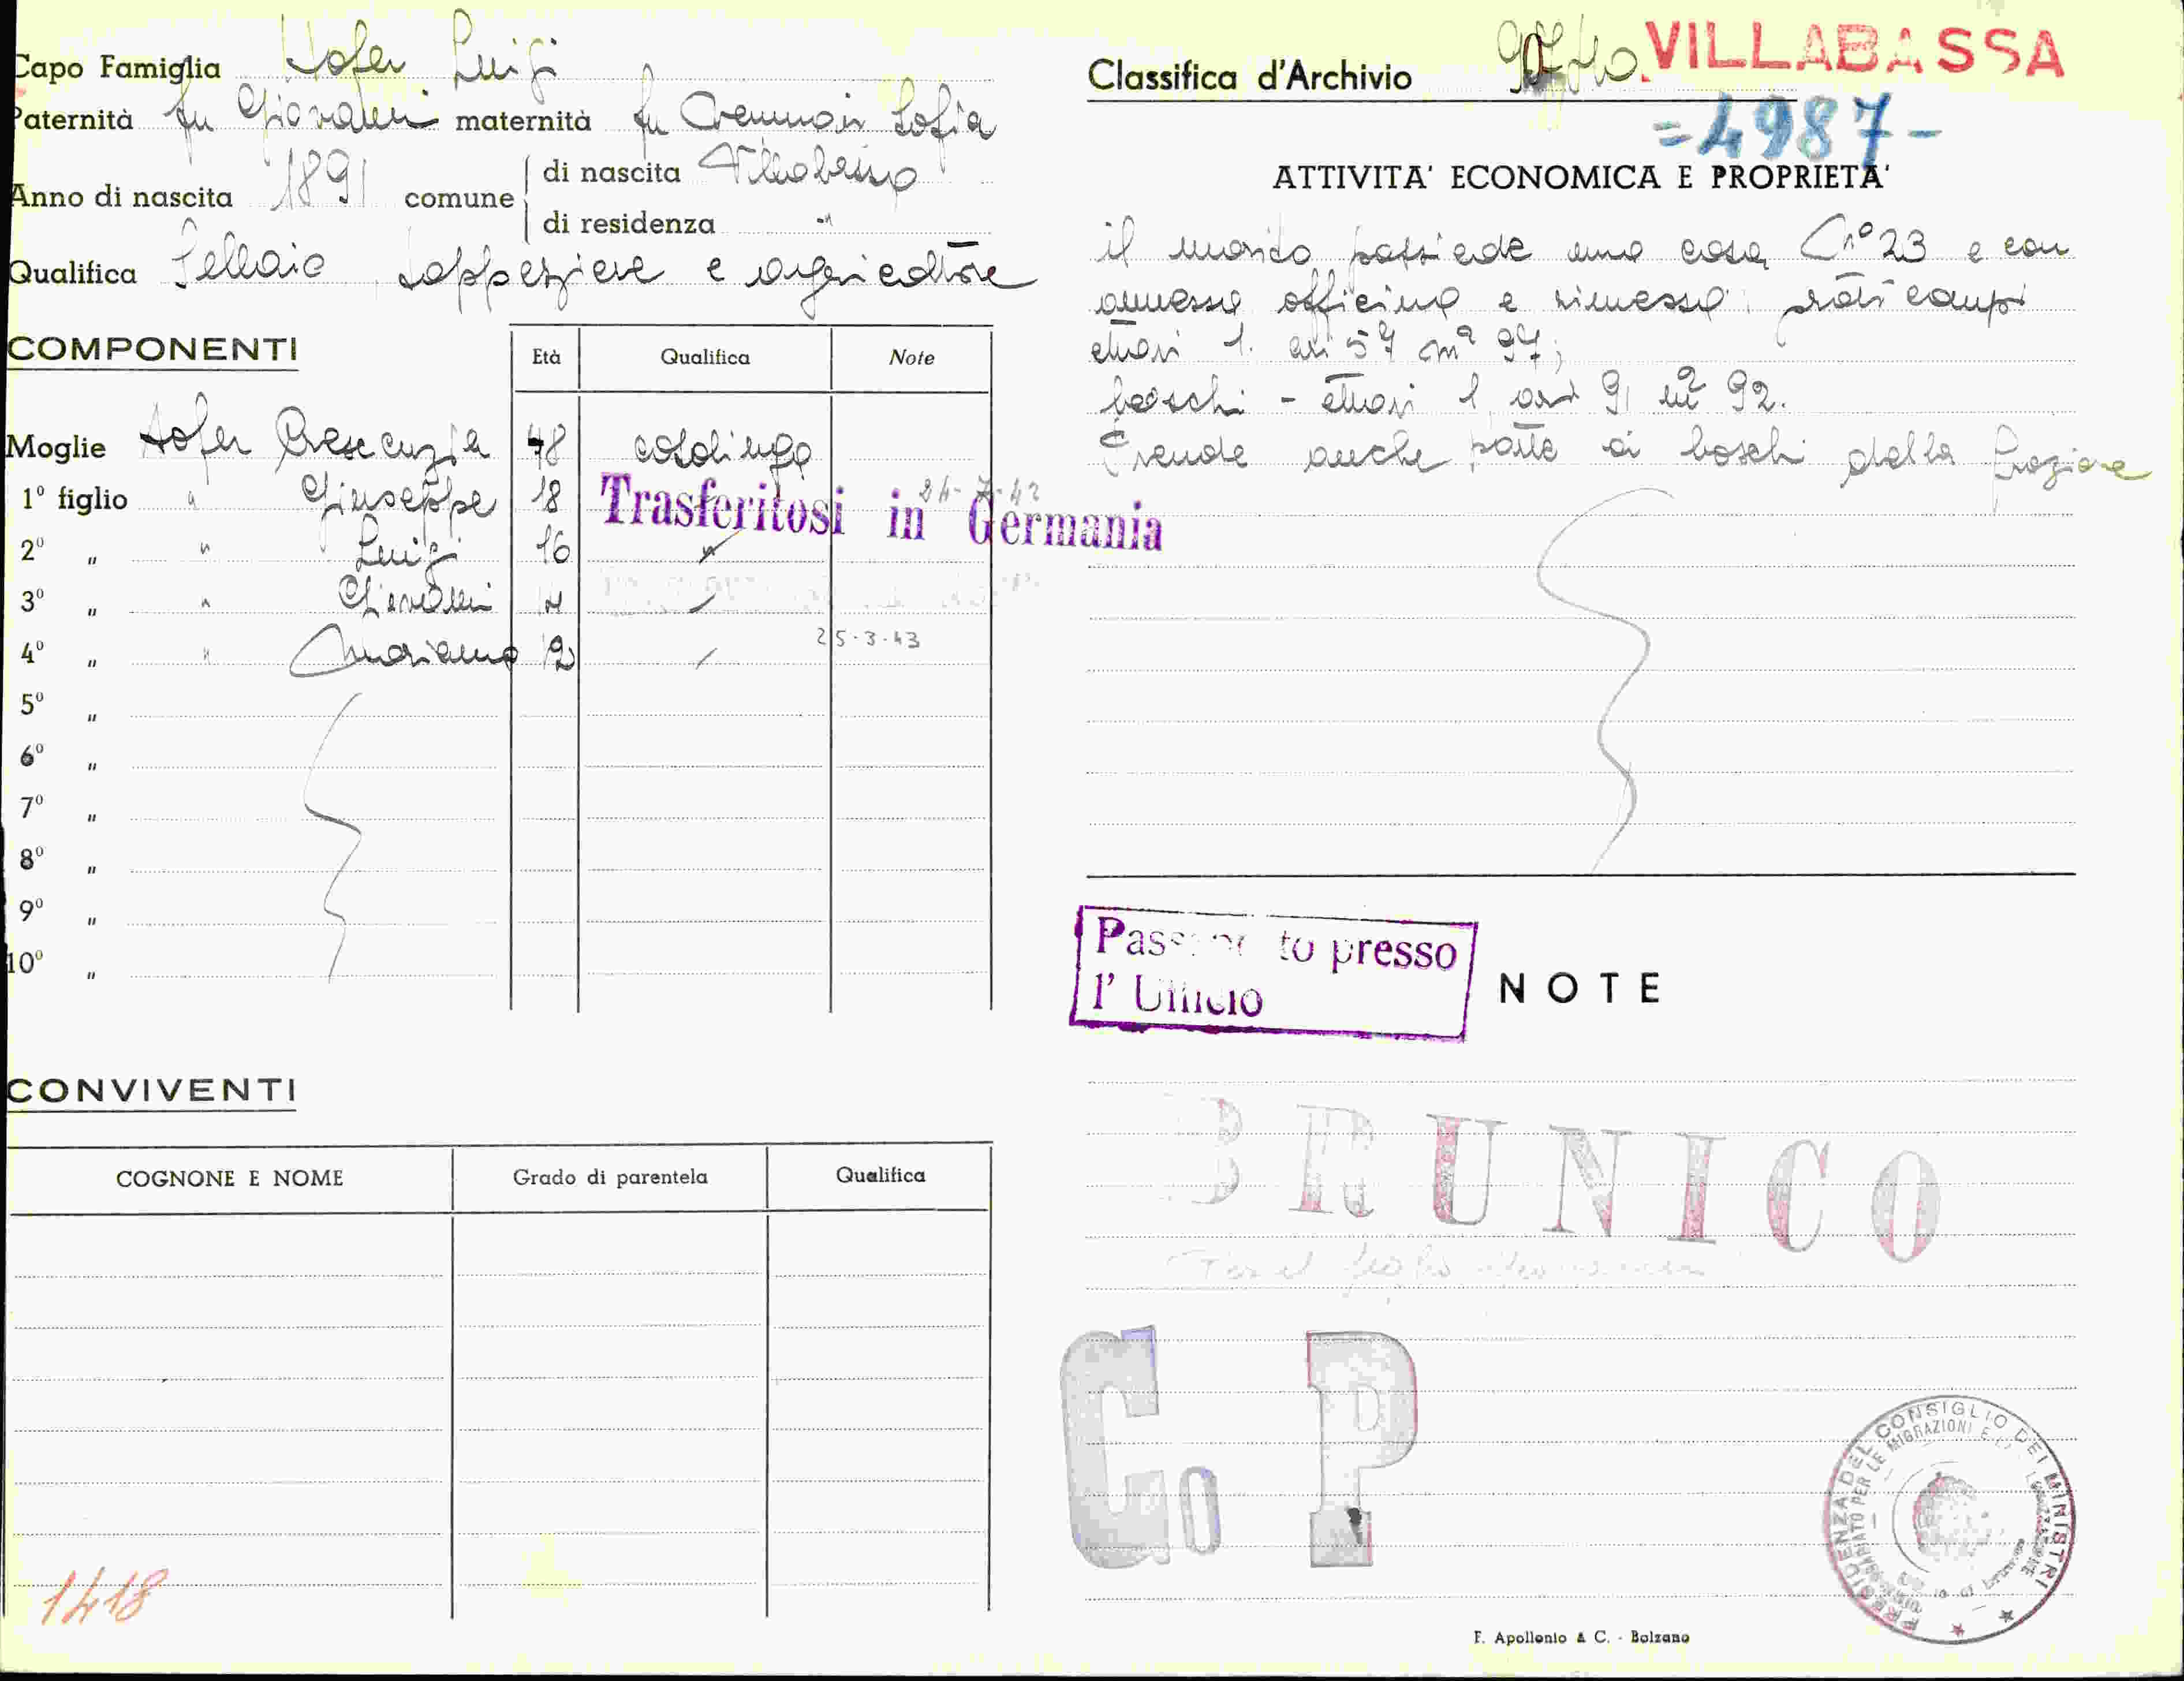 Capo Famiglia Hofer Luigi
Paternità fu Giovanni maternità fu Sofia
Anno di nascita 1891 comune di nascita Villabassa
di residenza "
Qualifica Sellaio tappezziere e agricoltore
COMPONENTI Età Qualifica Note
Moglie Hofer Crescenzia 48 casalinga
1º figlio " Giuseppe 18 Trasferitosi in Germania 24-7-42
2º " " Luigi 16 "
3º " " Giovanni
4º " " Marianna 12 25-3-43
5º "
6º "
7º "
8º "
9º "
10º "
CONVIVENTI
COGNONE E NOME Grado di parentela Qualifica
1418
Classifica d'Archivio VILLABASSA
=4987-
ATTIVITA' ECONOMICA E PROPRIETA'
il marito possiede una casa nº 23 e con
annessa officina e rimessa prati campi
ettari 1. ari 57 m² 97;
boschi - ettari 1 ari 91 m² 92.
Prende anche parte ai boschi della frazione
to presso
l' Ufficio
NOTE
BRUNICO
Co P
PRESIDENZA DEL CONSIGLIO DEI MINISTRI
F. Apollonio & C. - Bolzano